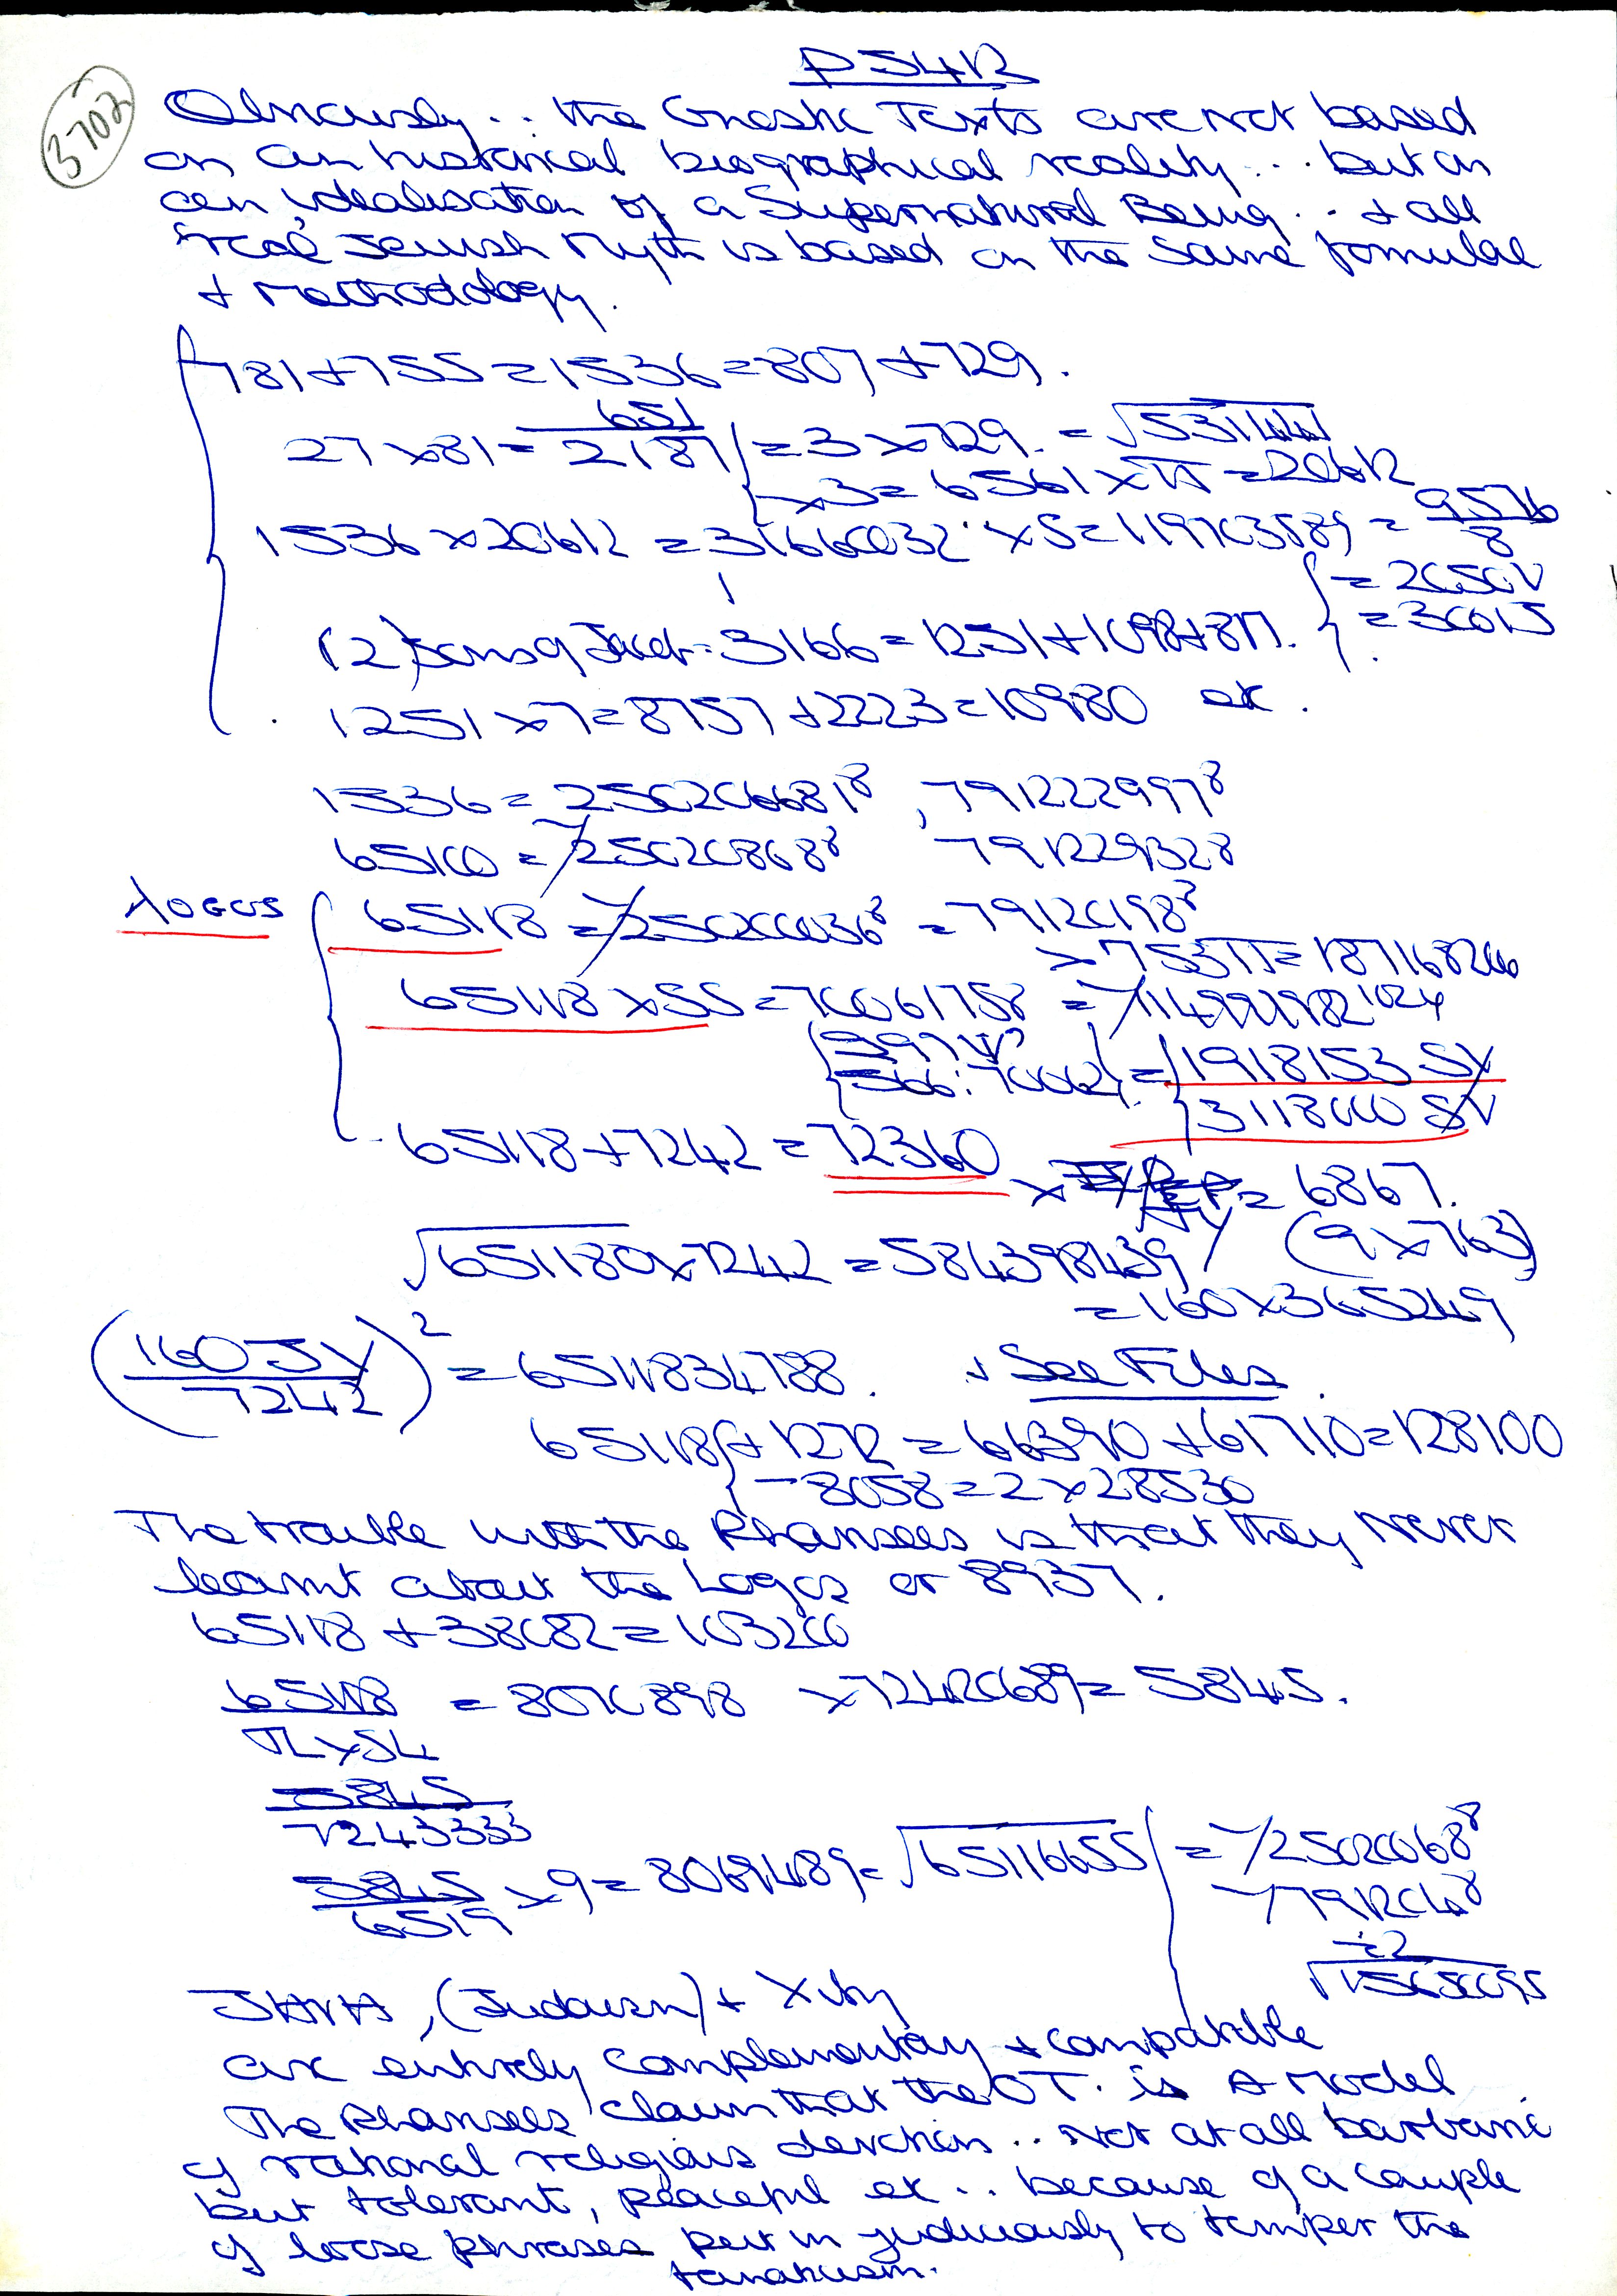 P 54B
3702
Obviously.. the Gnostic Texts are not based
on an historical biographical reality... but on
an idealisation of a Supernatural Being.. + all
real Jewish Myth is based on the same formulae
+ methodology.
781+755=1536=807+729.
27×81=2187 =3×729. =√531441
651
×3=6561×π=20612
1536×20612=31660032 ×5=119703589=9576/8
=2050V
(2) Sons of Jacob=3166=1251+1098+817.
=36015
1251×7=8757+2223=10980 etc.
1536=250206681⁸, 791222997⁸
65100= 25020868⁸ 791229328
λοgos
65118= 25020036⁸ =79120198⁸
65118×SS=70061758 = 
=1918153 SY
3118000 SV
65118+7242=72360
=6867.
√651180×7242=584398439 (9×763)
=160×365249
(160JY/7242)²=6511834788. + See Files.
65118+1272=66390+61710=128100
-8058=2×28530
The trouble with the Pharisees is that they never
learnt about the Logos or 8937.
65118+38082=103200
65118/π×54 =8070898 ×72420689=5845.
5845
7243333
5845/6519 ×9=8069489=√65116655 = 25020068⁸
791204⁸
÷2
JAHA, (Judaism) + Xity
are entirely complementary + compatible
The Pharisees claim that the OT. is A model
of rational religious devotion.. Not at all barbaric
but tolerant, peaceful etc.. because of a couple
of loose phrases put in judiciously to temper the
fanaticism.